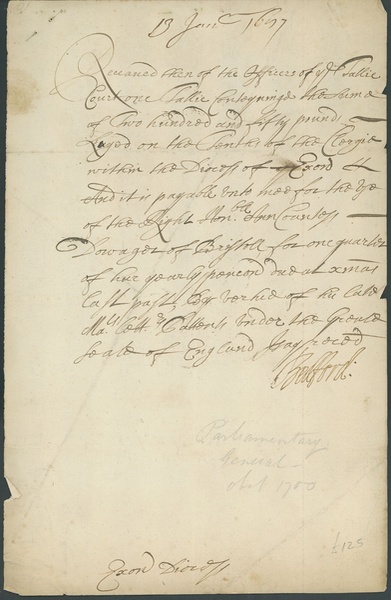 13 Janr 1697
Receaved then of the Officers of ye Tallie
Court one Tallie conteyninge the sume
of Two hundred and fifty pounds
Layed on the Tenths of the Clergie
within the Dioces of Exon
And it is payable unto mee for the Use
of the Right Honble Ann Countess
Dowager of Bristoll for one quarter
of her yearly pencon due at xmas
last past By vertue of his late
Maties Letters Pattents under the Greate
Seale of England I say receed
Parliamentary
General
obt 1700
£125
Exon Diocess